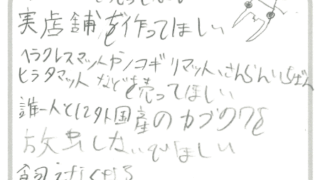 実店舗を作ってほしい
ヘラクレスマットやノコギリマット、さんらんいちばん
ヒラタマットなどを売ってほしい
誰一人として外国産のカブクワを
放虫しないでほしい